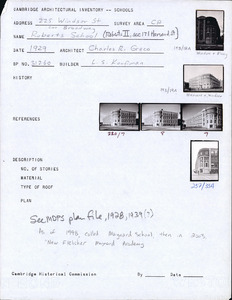 CAMBRIDGE ARCHITECTURAL INVENTORY -- SCHOOLS
ADDRESS 225 Windsor St. SURVEY AREA CP
Broadway
NAME Roberts School
DATE 1929 ARCHITECT Charles R. Greco
BP NO. 31280 BUILDER L. S. Kaufman
HISTORY
REFERENCES
DESCRIPTION
NO. OF STORIES
MATERIAL
TYPE OF ROOF
PLAN
See MDPS plan file, 1928, 1939 (?)
As of 1998, called Maynard School, then in 2003,
"New Fletcher Maynard Academy
Cambridge Historical Commission By Date